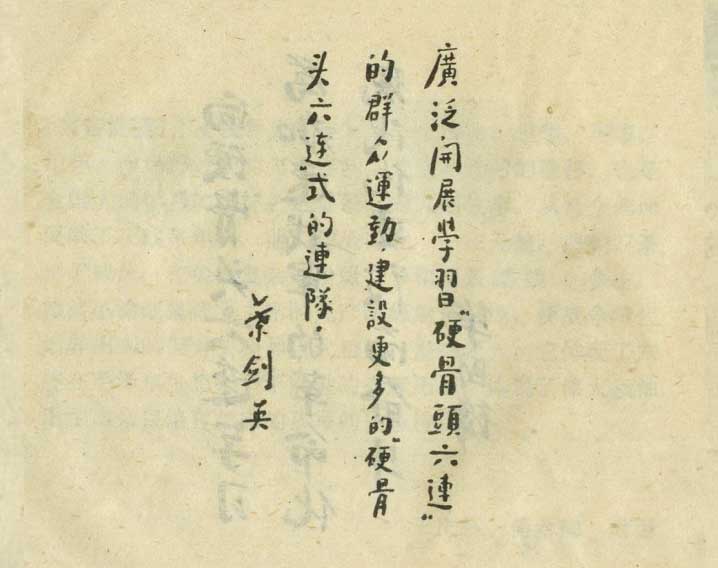 廣泛開展学習“硬骨頭六連”
的群众運動，建設更多的“硬骨
头六连”式的連隊。
葉剑英